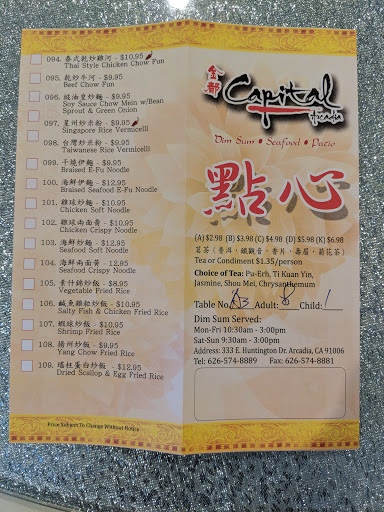 094. 泰式乾炒雞河 - $10.95
Thai Style Chicken Chow Fun
095. 乾炒牛河 - $9.95
Beef Chow Fun
096. 豉油皇炒麵 - $9.95
Soy Sauce Chow Mein w/Bean
Sprout & Green Onion
097. 星州炒米粉 - $9.95
Singapore Rice Vermicelli
098. 台灣炒米粉 - $9.95
Taiwanese Rice Vermicelli
099. 干燒伊麵 - $9.95
Braised E-Fu Noodle
100. 海鮮伊麵 - $12.95
Braised Seafood E-Fu Noodle
101. 雞球炒麵 - $10.95
Chicken Soft Noodle
102. 雞球兩面黃 - $10.95
Chicken Crispy Noodle
103. 海鮮炒麵 - $12.95
Seafood Soft Noodle
104. 海鮮兩面黃 - $12.95
Seafood Crispy Noodle
105. 素什錦炒飯 - $8.95
Vegetable Fried Rice
106. 鹹魚雞粒炒飯 - $10.95
Salty Fish & Chicken Fried Rice
107. 蝦球炒飯 - $10.95
Shrimp Fried Rice
108. 揚州炒飯 - $9.95
Yang Chow Fried Rice
109. 瑤柱蛋白炒飯 - $12.95
Dried Scallop & Egg Fried Rice
Price Subject To Change Without Notice
金都
Capital
Arcadia
Dim Sum • Seafood • Patio
點心
(A) $2.98 (B) $3.98 (C) $4.98 (D) $5.98 (K) $6.98
茗茶 (普洱、鐵觀音、香片、壽眉、菊花茶)
Tea or Condiment $1.35/person
Choice of Tea: Pu-Erh, Ti Kuan Yin,
Jasmine, Shou Mei, Chrysanthemum
Table No. 83 Adult: 8 Child: 1
Dim Sum Served:
Mon-Fri 10:30am - 3:00pm
Sat-Sun 9:30am - 3:00pm
Address: 333 E. Huntington Dr. Arcadia, CA 91006
Tel: 626-574-8889 Fax: 626-574-8881